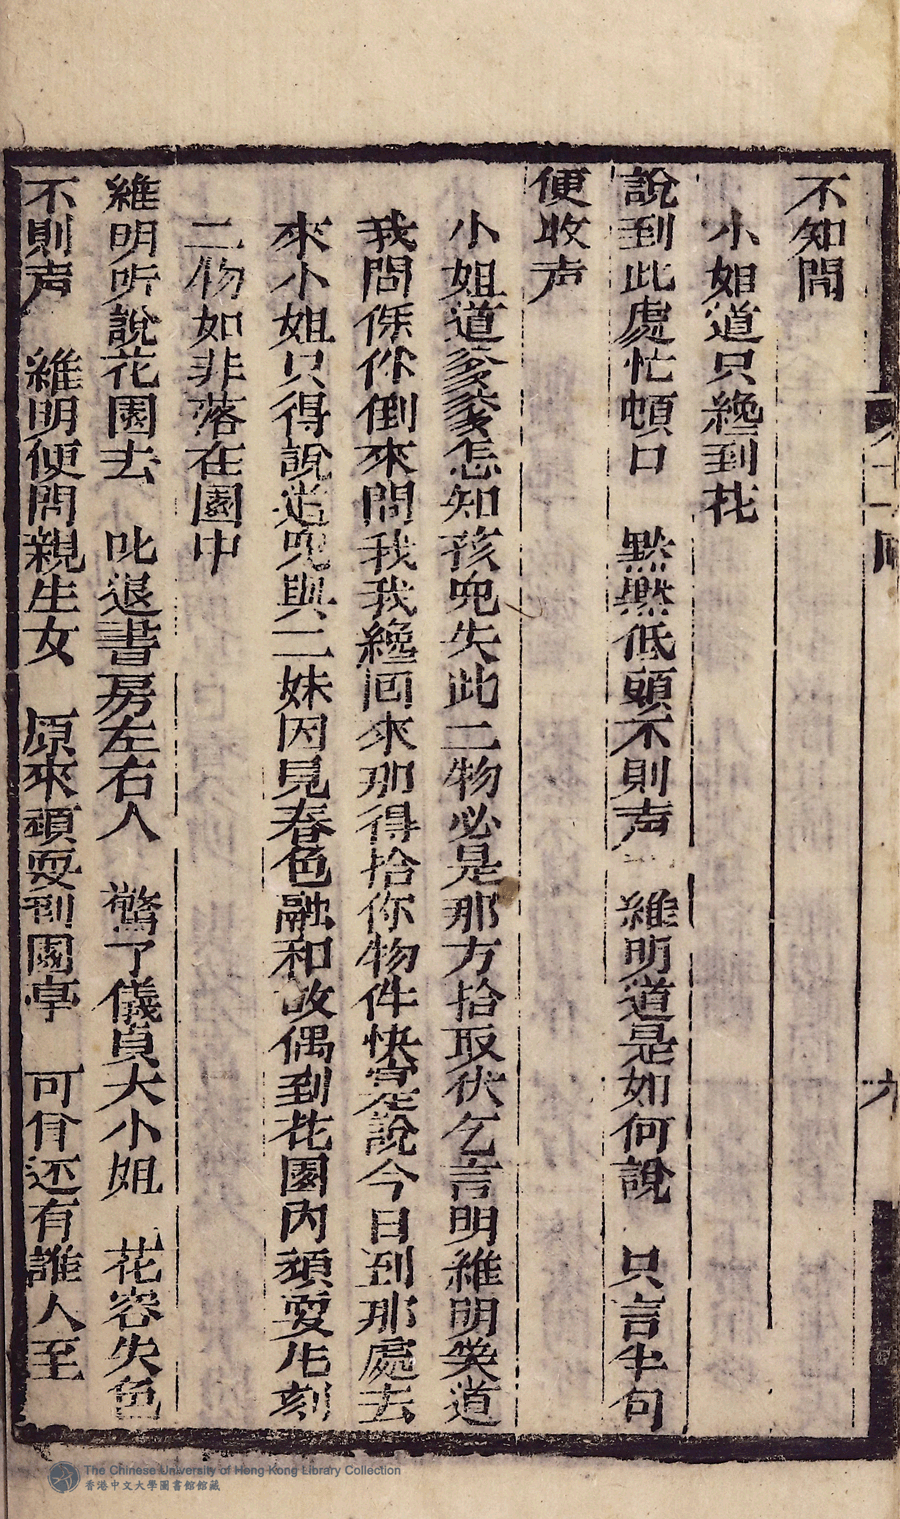 不知問
小姐道只纔到花
說到此處忙頓口 黙黙低頭不則声 維明道是如何說 只言半句
便收声
小姐道爹爹怎知孩児失此二物必是那方拾取伏乞言明維明笑道
我問伱伱倒來問我我纔回來那得拾你物件快寔說今日到那處去
來小姐只得說道児與二妹因見春色融和故偶到花園內頑耍片刻
二物如非落在園中
維明听說花園去 叱退書房左右人 驚了儀貞大小姐 花容失色
不則声 維明便問親生女 原來頑耍到園亭 可曾还有誰人至
九
The Chinese University of Hong Kong Library Collection
香港中文大學圖書館館藏